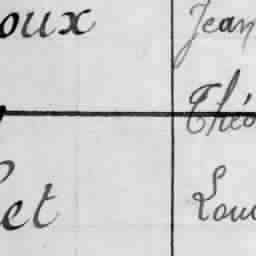 oux Jean
Théo
et Lou